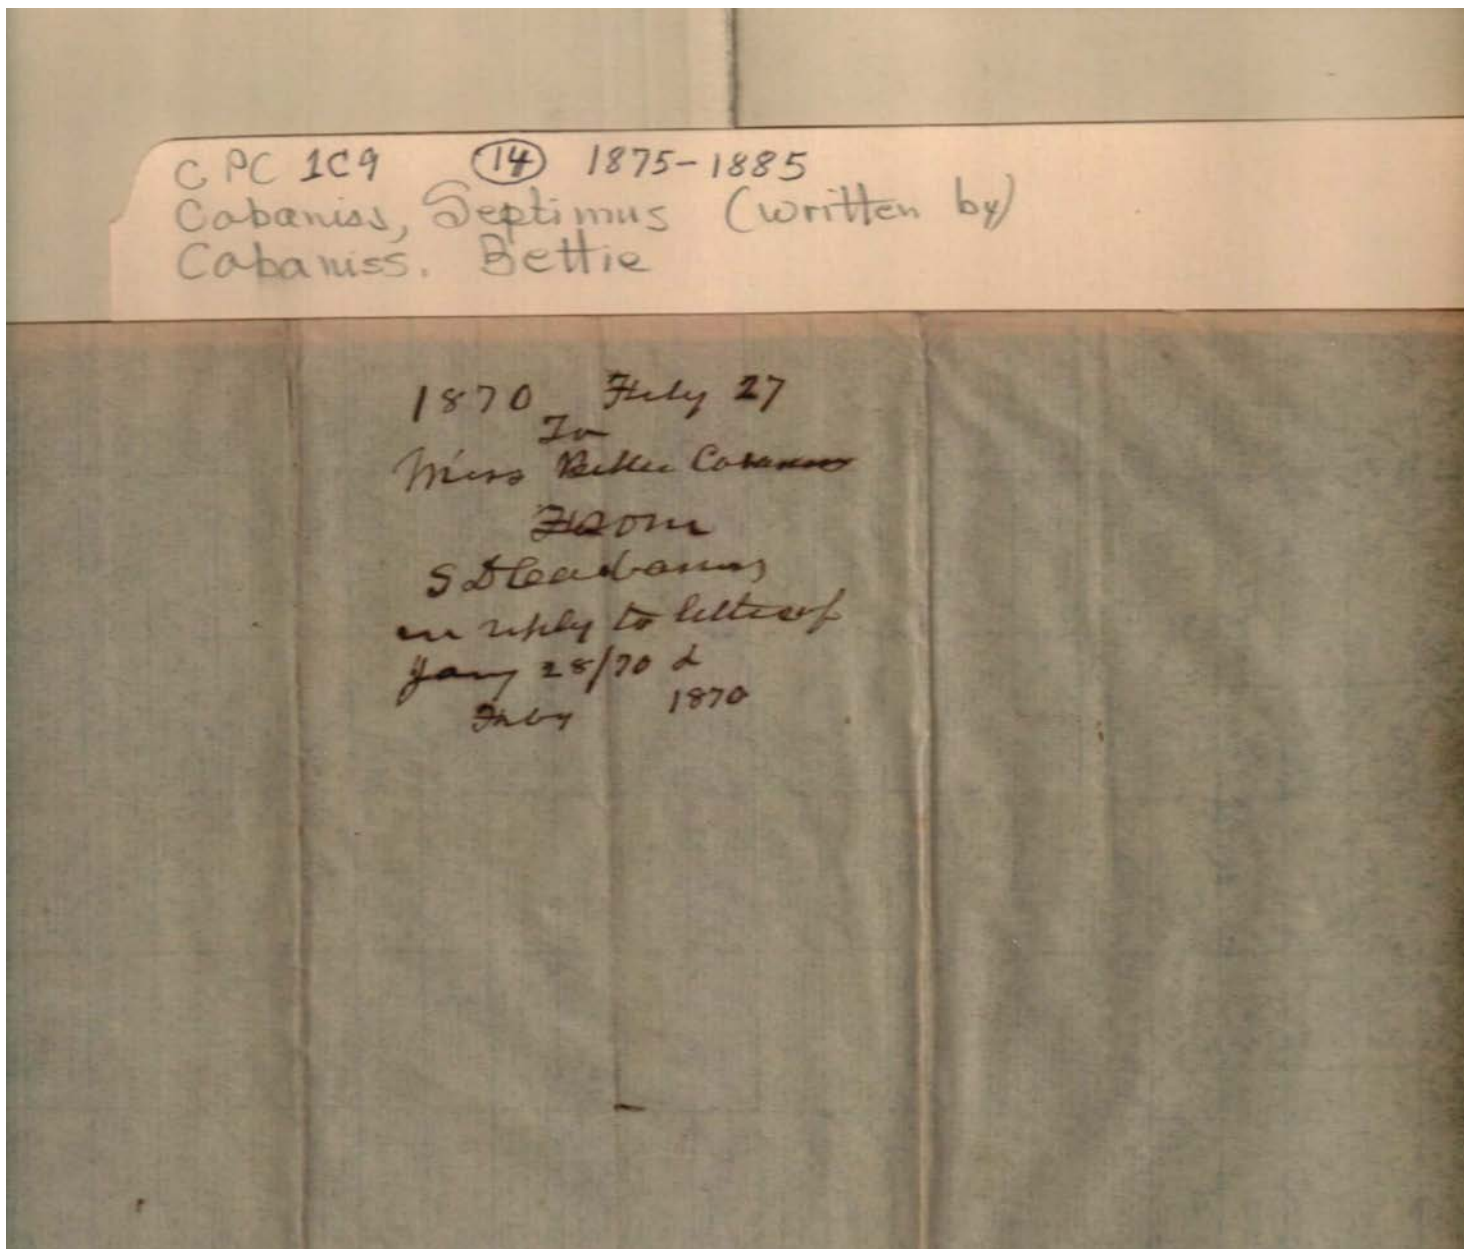 C PC 1C9 14 1875-1885
Cabaniss, Septimus (written by)
Cabaniss. Bettie
1870 Feby 27
To
Miss Bettie Cabaniss
From
S D Cabaniss
in reply to letter of
Jany 28/70 &
Feby 1870